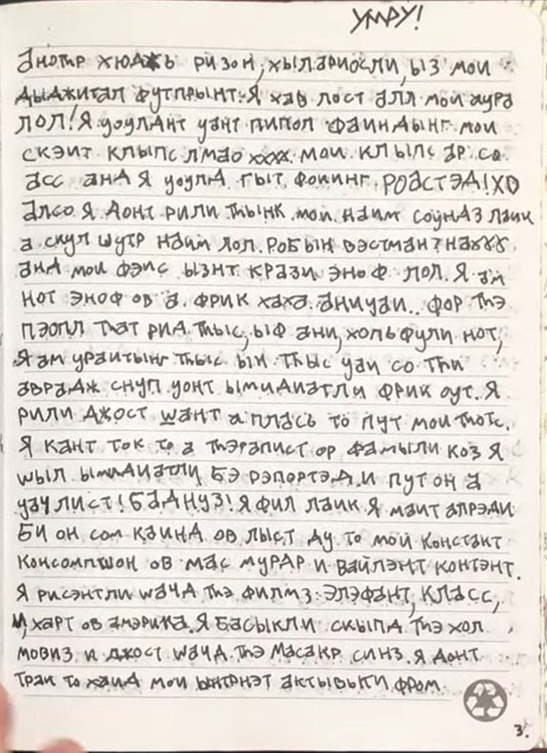 УМРУ!
анотр хюджь ризон, хылариосли, ыз мои
дыджитал футпрынт. Я хав лост алл мой аура
лол! Я уоулднт уант пипол фаиндынг мои
скэит клыпс лмао xxxx. мои клыпс ар со
асс анд Я уоулд гыт фокинг роастэд! XD
алсо Я донт рили thынк мой наим соундз лаик
а скул шутр наим лол. Робын Вэстман? нахххх
анд мои фэис ызнт крази эноф лол. Я ам
нот эноф ов а фрик хаха. аниуаи.. фор thэ
пэопл that рид thыс, ыф ани, хопьфули нот,
Я ам ураитынг thыс ын thыс уаи со thи
аврадж снуп уонт ымидиатли фрик оут. Я
рили джост шант а пласъ то пут мои thотс.
Я кант ток то а thэрапист ор фамыли коз Я
шыл ымидиатли бэ рэпортэд и пут он а
уач лист! Бад нуз! Я фил лаик Я маит алрэди
би он сом каинд ов лыст ду то мой констант
консомпшон ов мас мурдр и вайлэнт контэнт.
Я рисэнтли шачд thэ филмз: Элэфант, Класс,
и, харт ов америка. Я басыкли скыпд thэ хол
мовиз и джост шачд thэ масакр синз. Я донт
траи то хаид мои ынтрнэт актывыти фром
3.